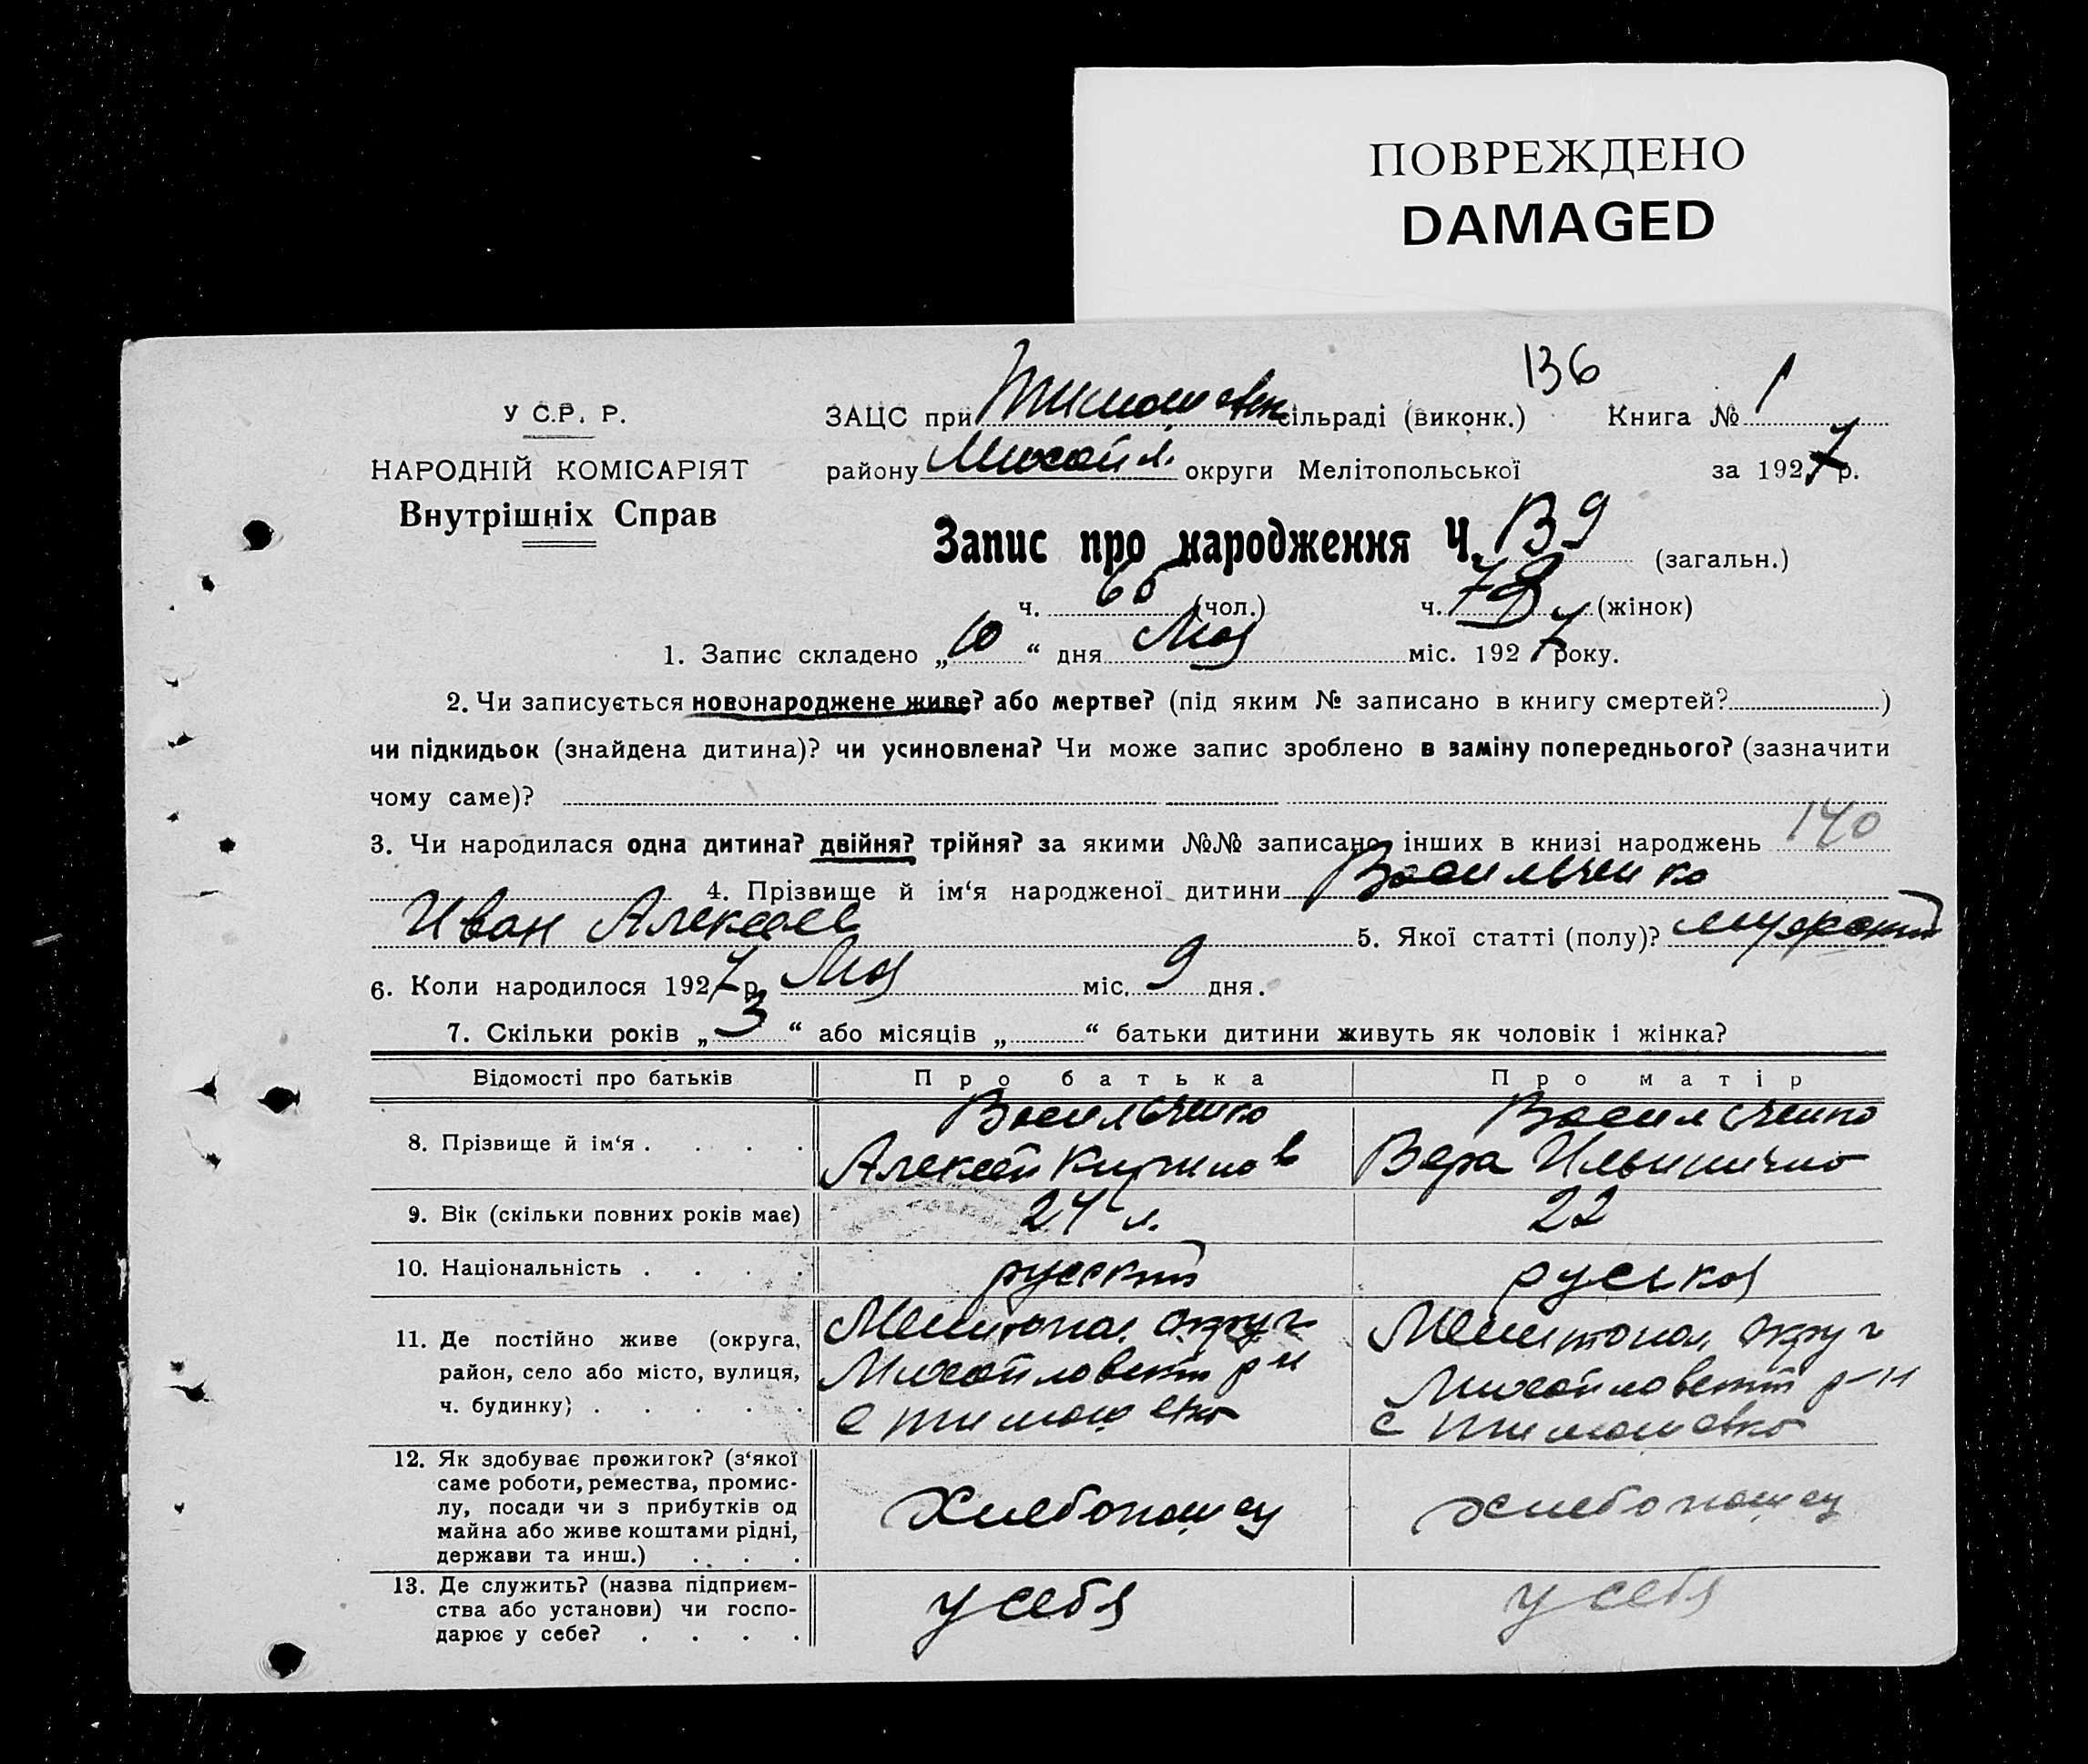 ПОВРЕЖДЕНО
DAMAGED
136
У С.Р. Р.
ЗАЦС при Тимошевк сільраді (виконк.) Книга № 1
НАРОДНІЙ КОМІСАРІЯТ
району Михайл. округи Мелітопольської за 1927 р.
Внутрішніх Справ
Запис про народження Ч. 139 (загальн.)
ч. (чол.) ч. (жінок)
1. Запис складено „10“ дня Мая міс. 1927 року.
2. Чи записується новонароджене живе? або мертве? (під яким № записано в книгу смертей? )
чи підкидьок (знайдена дитина)? чи усиновлена? Чи може запис зроблено в заміну попереднього? (зазначити
чому саме)?
3. Чи народилася одна дитина? двійня? трійня? за якими №№ записано інших в книзі народжень 140
4. Прізвище й ім‘я народженої дитини Васильченко
Иван Алексеев 5. Якої статті (полу)?
6. Коли народилося 1927 р. Мая міс. 9 дня.
7. Скільки років „3“ або місяців „ “ батьки дитини живуть як чоловік і жінка?
Відомості про батьків Про батька Про матір
8. Прізвище й ім‘я . . . . Васильченко Алексей Кирилов Васильченко Вера Ильинична
9. Вік (скільки повних років має) 24 л. 22
10. Національність . . . . русский руская
11. Де постійно живе (округа, Мелитопол. округ Мелитопол. округ
район, село або місто, вулиця, Михайловский р-н Михайловский р-н
ч. будинку) . . . . . с Тимошевка с Тимошевка
12. Як здобуває прожиток? (з‘якої
саме роботи, ремества, промис-
лу, посади чи з прибутків од Хлебопашец хлебопашец
майна або живе коштами рідні,
держави та инш.) . . .
13. Де служить? (назва підприєм-
ства або установи) чи госпо- у себя у себя
дарює у себе? . . . .